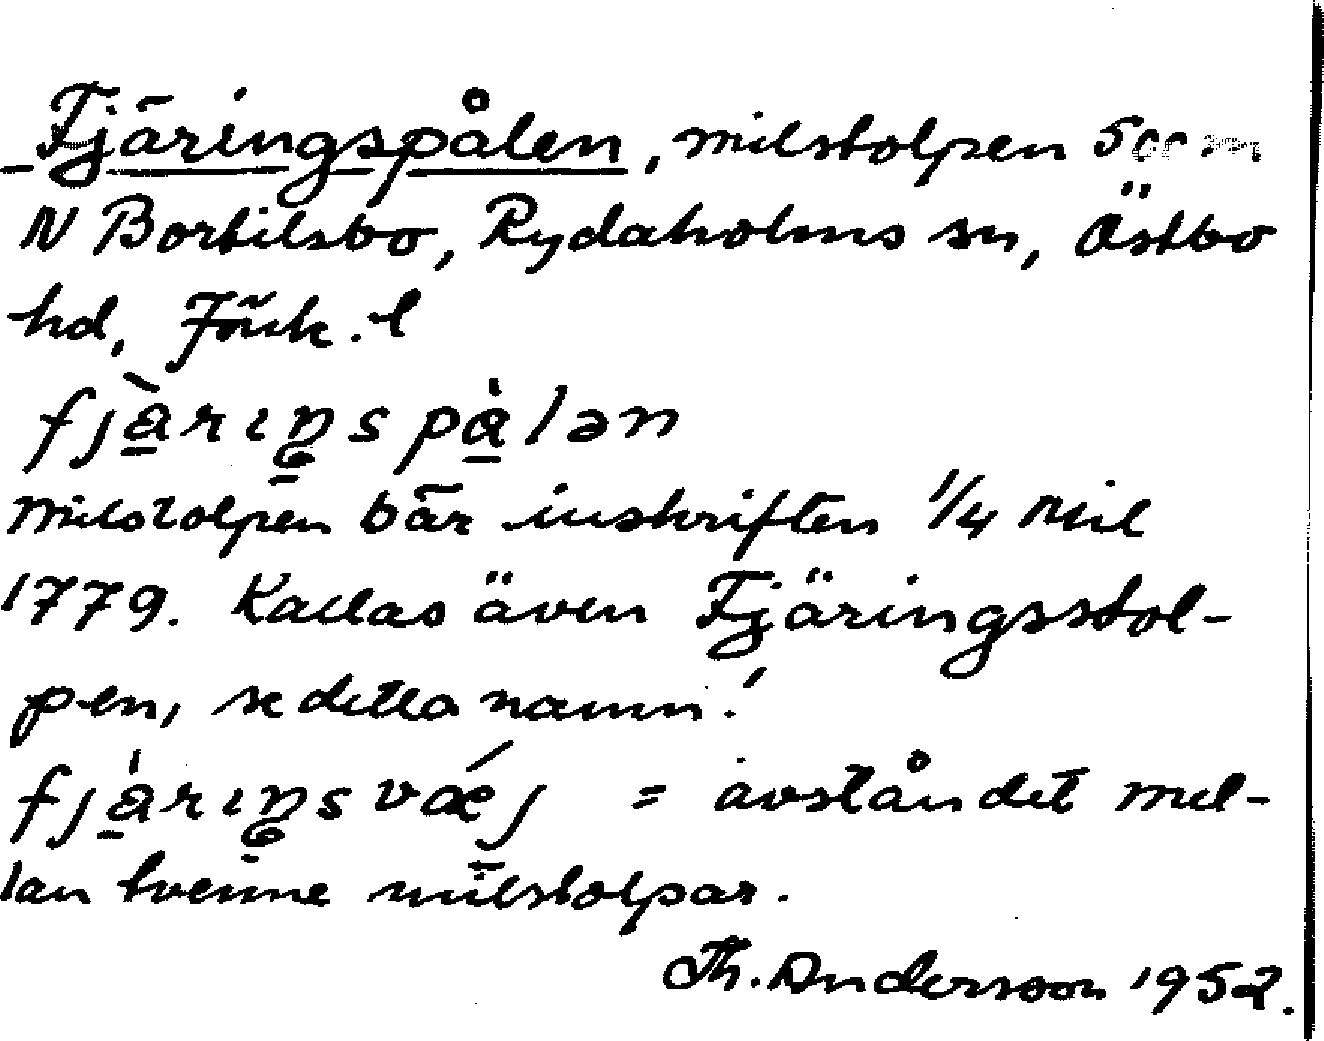 Fjäringspålen, milstolpen 500 m
N Bortilsbo, Rydaholms sn, Östbo
hd, Jönk. l
fjàrıŋspàlən
Milstolpen bär inskriften 1/4 Mil
1779. Kallas även Fjäringsstol-
pen, se detta namn!
fjàrıŋsvǽj = avståndet mel-
lan tvenne milstolpar.
Th. Andersson 1952.